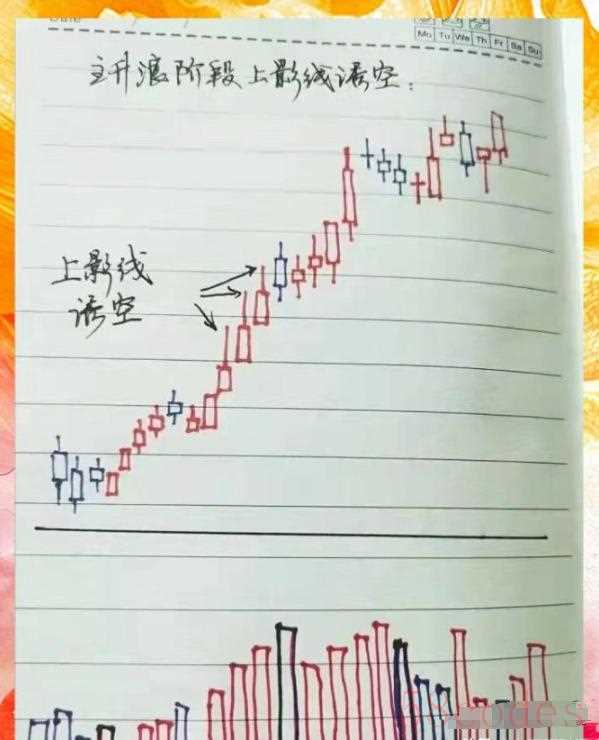 Mo Tu We Th Fr Sa Su
主升浪阶段上影线诱空:
上影线
诱空